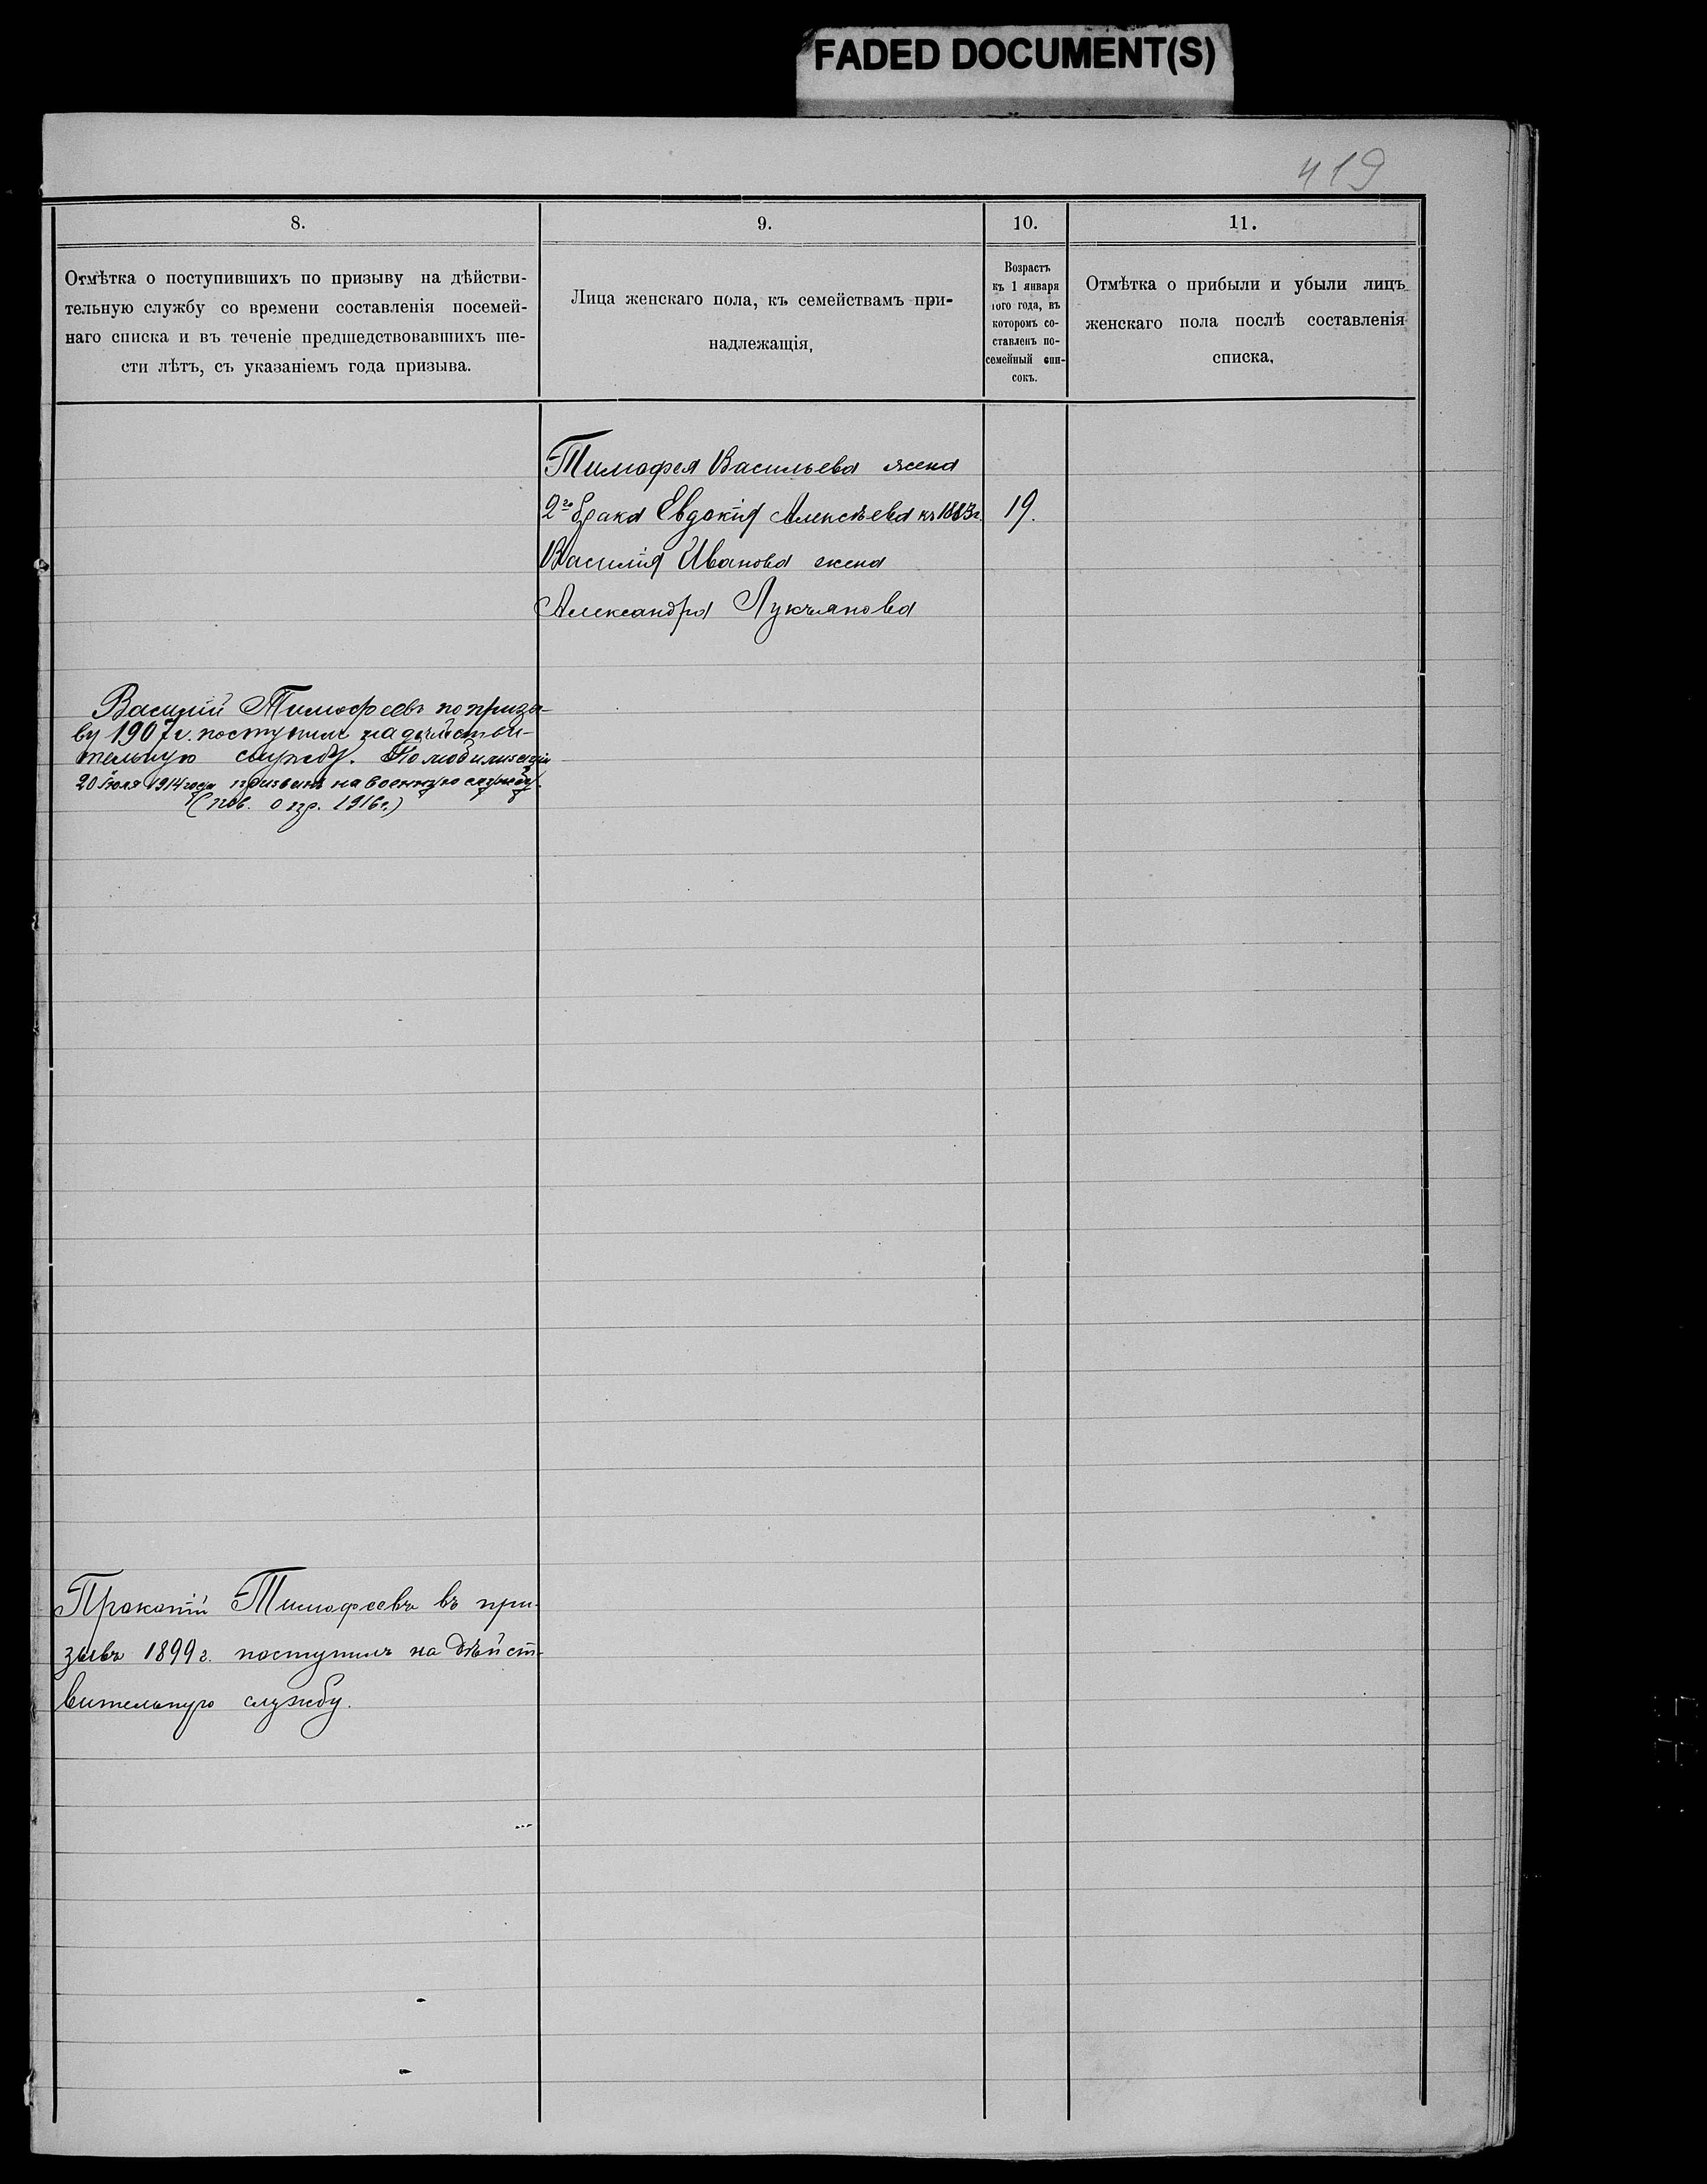 FADED DOCUMENT(S)
419
8.
9.
10.
11.
Отмѣтка о поступившихъ по призыву на дѣйстви-
тельную службу со времени составленія посемей-
наго списка и въ теченіе предшедствовавшихъ ше-
сти лѣтъ, съ указаніемъ года призыва.
Лица женскаго пола, къ семействамъ при-
надлежащія,
Возрастъ
къ 1 января
того года, въ
которомъ со-
ставленъ по-
семейный спи-
сокъ.
Отмѣтка о прибыли и убыли лицъ
женскаго пола послѣ составленія
списка.
Тимофея Васильева жена
2го брака Евдокія Алексѣева къ 1883г. 19.
Василія Иванова жена
Александра Лукъянова
Василій Тимофеевъ по призы-
ву 1907 г. поступилъ на дѣйстви-
тельную службу. По мобилизаціи
20 Іюля 1914 года призванъ на военную службу.
(пов. опр. 1916 г.)
Прокопій Тимофеевъ въ при-
зывъ 1899 г. поступилъ на дѣйст-
вительную службу.